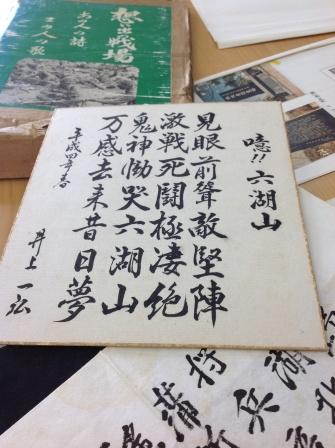 想い出戦場
あの人の詩
この人の歌
噫!! 六湖山
見眼前聳敵堅陣
激戦死闘極凄絶
鬼神慟哭六湖山
万感去来昔日夢
平成四年春
井上一弘